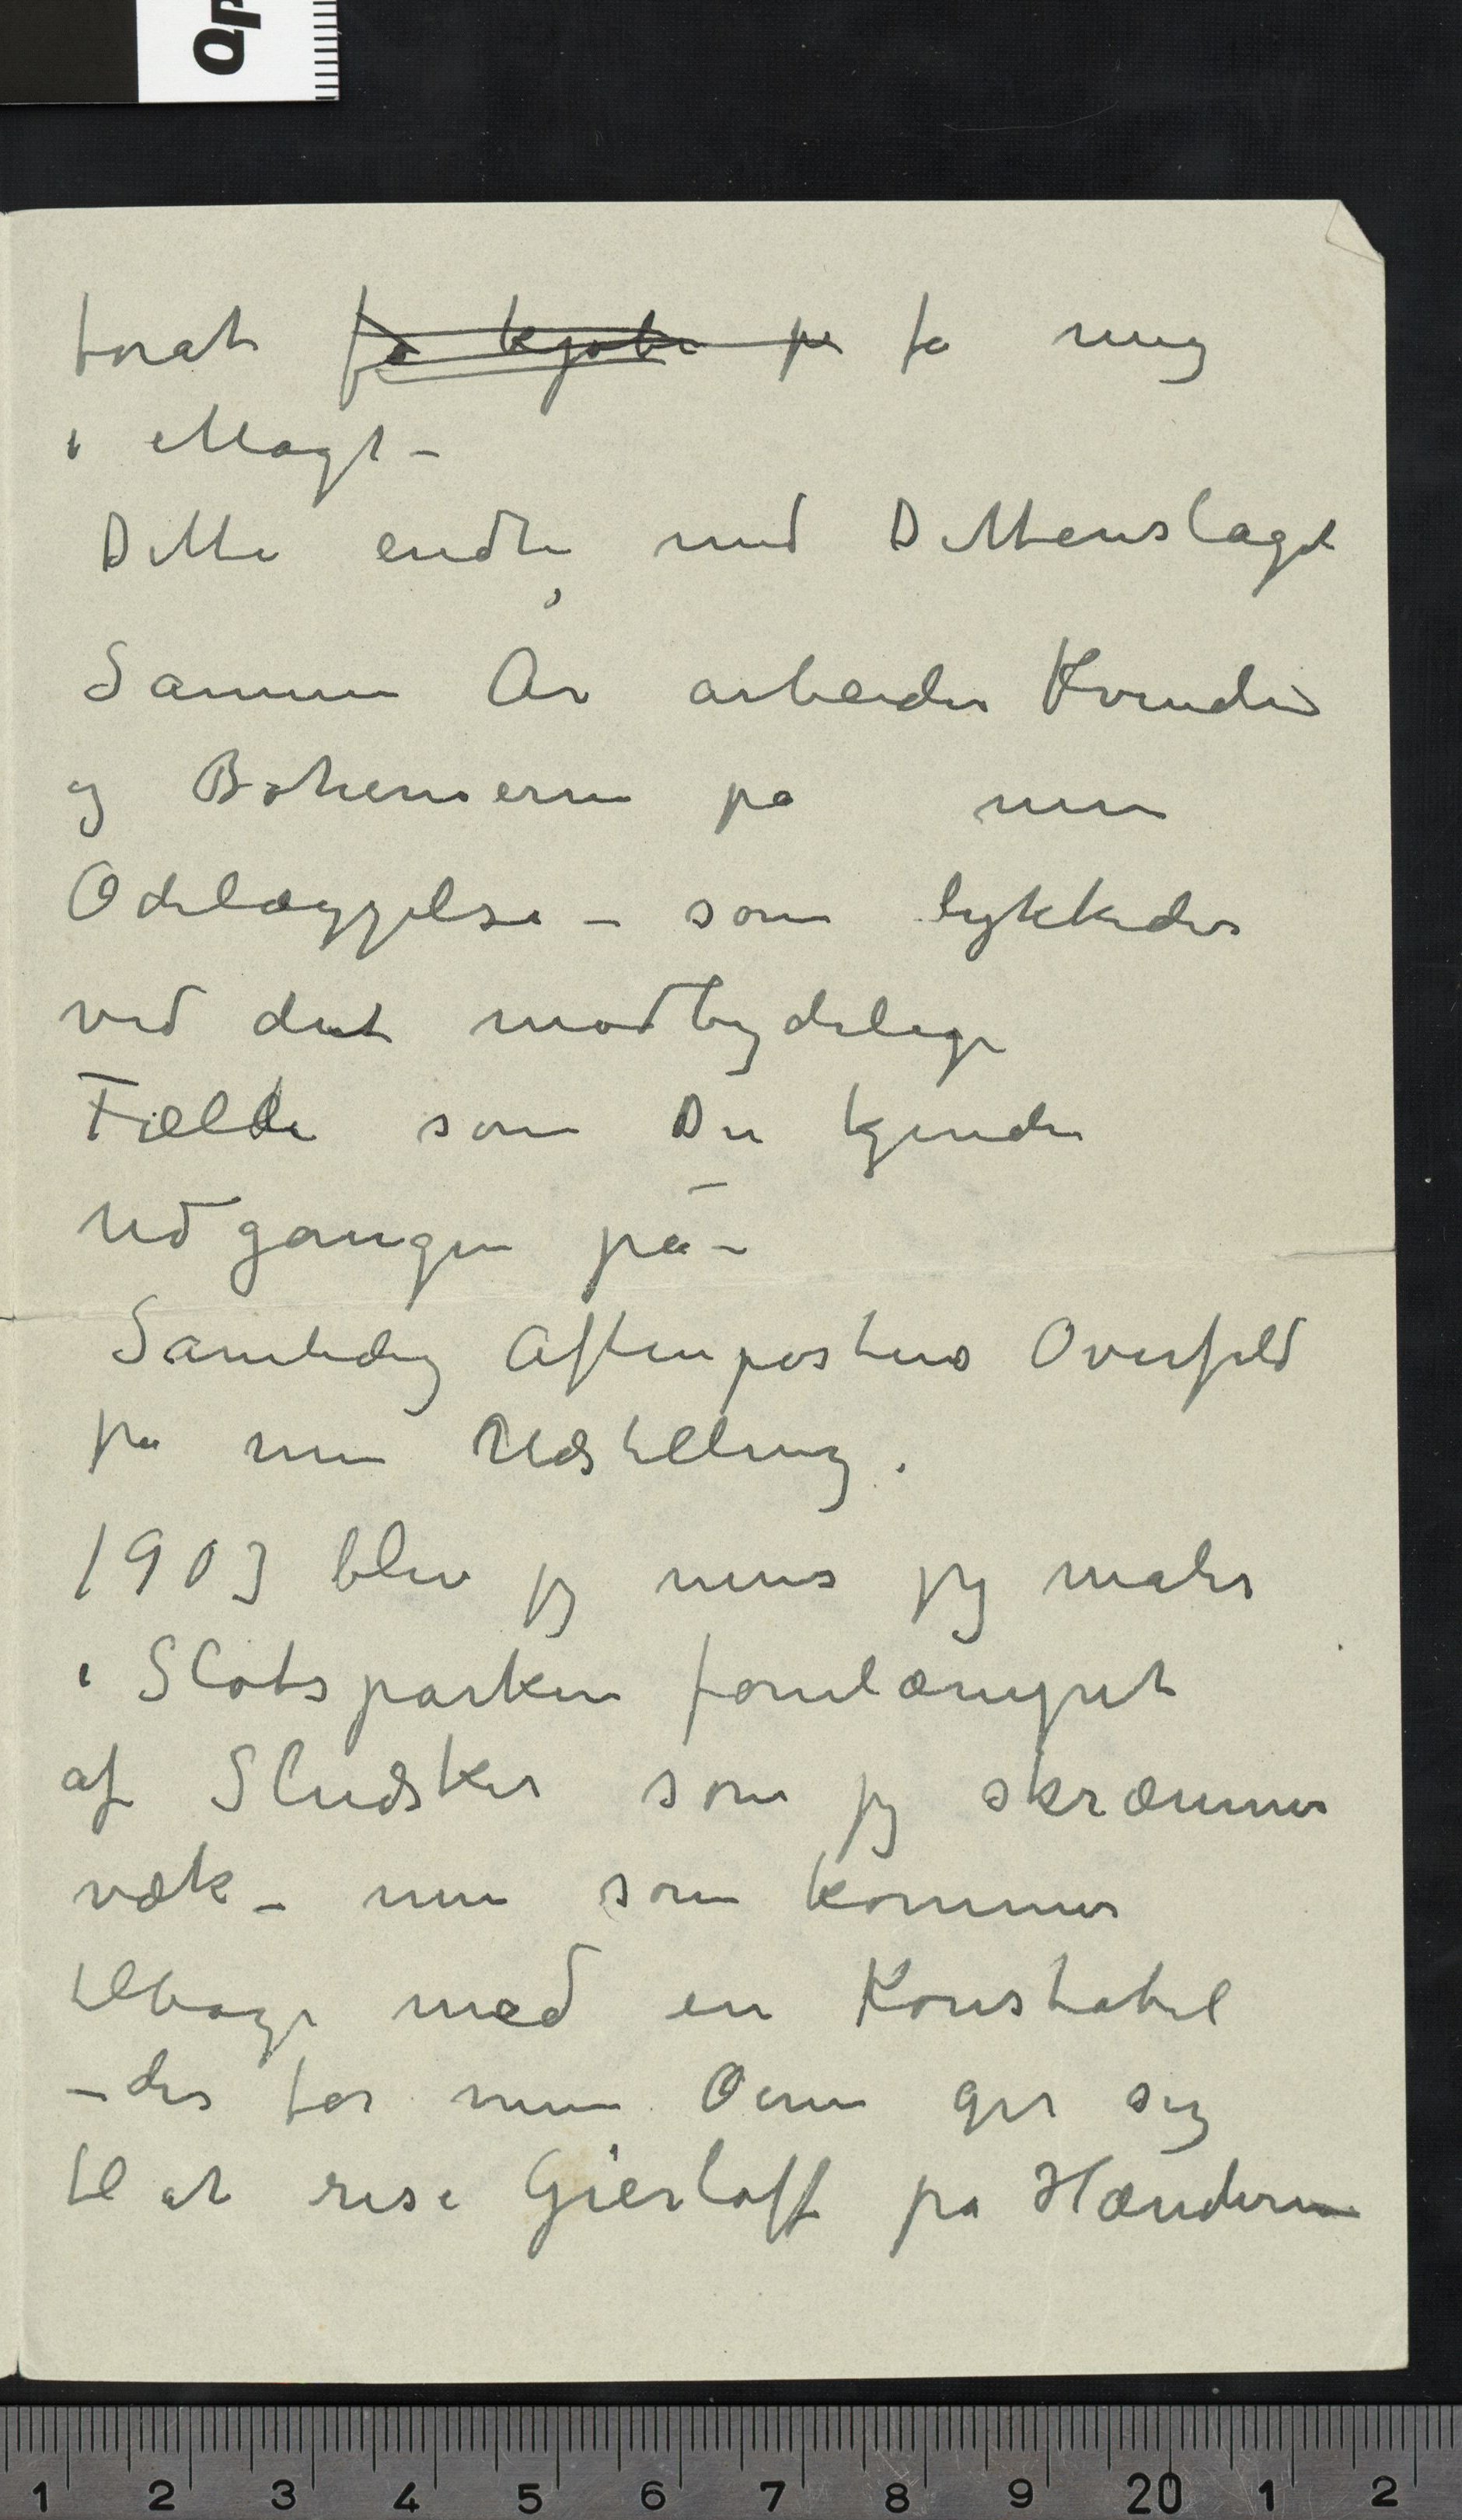 forat få kjøbe på få mig
i Magt –
Dette endte med Dettenslaget
Samme År arbeider Kvinden
og Bohemerne på min
Ødelæggelse – som lykkedes
ved det modbydelige
Fælde som Du kjender
Udgangen på –
Samtidig Aftenpostens Overfald
på min Udstilling.
1903 blev jeg mens jeg maler
i Slotsparken fornærmet
af Sludsker som jeg skræmmer
væk – men som kommer
tilbage med en Konstabel
– der for mine Øine gir sig
til at rise Gierløff på Hænderne
1 2 3 4 5 6 7 8 9 20 1 2